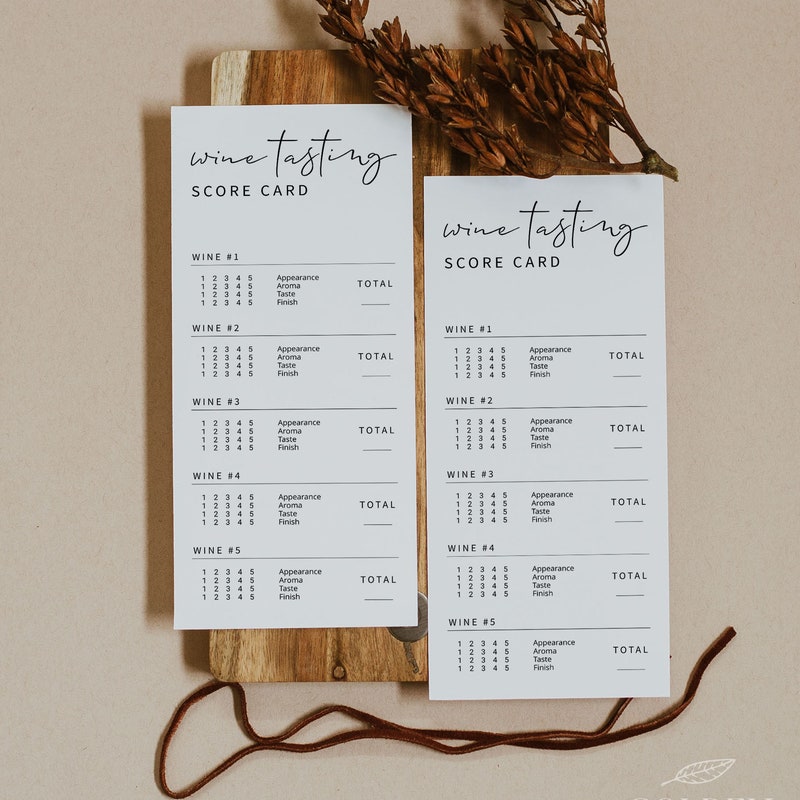 wine tasting
SCORE CARD
WINE #1
1 2 3 4 5 Appearance
1 2 3 4 5 Aroma
1 2 3 4 5 Taste
1 2 3 4 5 Finish
TOTAL
WINE #2
1 2 3 4 5 Appearance
1 2 3 4 5 Aroma
1 2 3 4 5 Taste
1 2 3 4 5 Finish
TOTAL
WINE #3
1 2 3 4 5 Appearance
1 2 3 4 5 Aroma
1 2 3 4 5 Taste
1 2 3 4 5 Finish
TOTAL
WINE #4
1 2 3 4 5 Appearance
1 2 3 4 5 Aroma
1 2 3 4 5 Taste
1 2 3 4 5 Finish
TOTAL
WINE #5
1 2 3 4 5 Appearance
1 2 3 4 5 Aroma
1 2 3 4 5 Taste
1 2 3 4 5 Finish
TOTAL
wine tasting
SCORE CARD
WINE #1
1 2 3 4 5 Appearance
1 2 3 4 5 Aroma
1 2 3 4 5 Taste
1 2 3 4 5 Finish
TOTAL
WINE #2
1 2 3 4 5 Appearance
1 2 3 4 5 Aroma
1 2 3 4 5 Taste
1 2 3 4 5 Finish
TOTAL
WINE #3
1 2 3 4 5 Appearance
1 2 3 4 5 Aroma
1 2 3 4 5 Taste
1 2 3 4 5 Finish
TOTAL
WINE #4
1 2 3 4 5 Appearance
1 2 3 4 5 Aroma
1 2 3 4 5 Taste
1 2 3 4 5 Finish
TOTAL
WINE #5
1 2 3 4 5 Appearance
1 2 3 4 5 Aroma
1 2 3 4 5 Taste
1 2 3 4 5 Finish
TOTAL